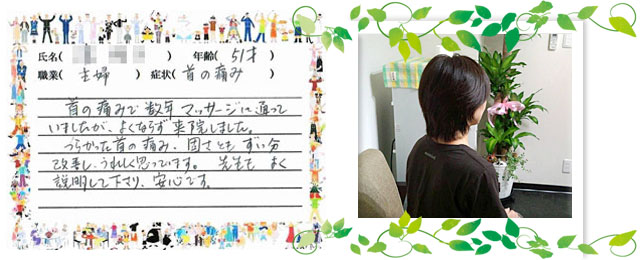 氏名( ) 年齢( 51才 )
職業( 主婦 ) 症状( 首の痛み )
首の痛みで数年マッサージに通って
いましたが、よくならず来院しました。
つらかった首の痛み、固さとも ずい分
改善し、うれしく思っています。 先生も よく
説明して下さり、安心です。